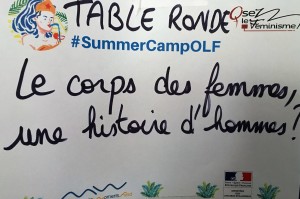 TABLE RONDE
Osez
le Féminisme!
#SummerCampOLF
Le corps des femmes,
une histoire d'hommes!